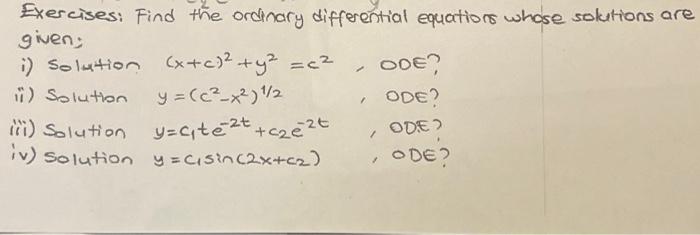 Exercises: Find the ordinary differential equations whose solutions are
given:
i) Solution (x+c)² + y² = c² , ODE?
ii) Solution y = (c²-x²)^1/2 , ODE?
iii) Solution y=c₁te^-2t + c₂e^-2t , ODE?
iv) Solution y = c₁sin(2x+c₂) , ODE?